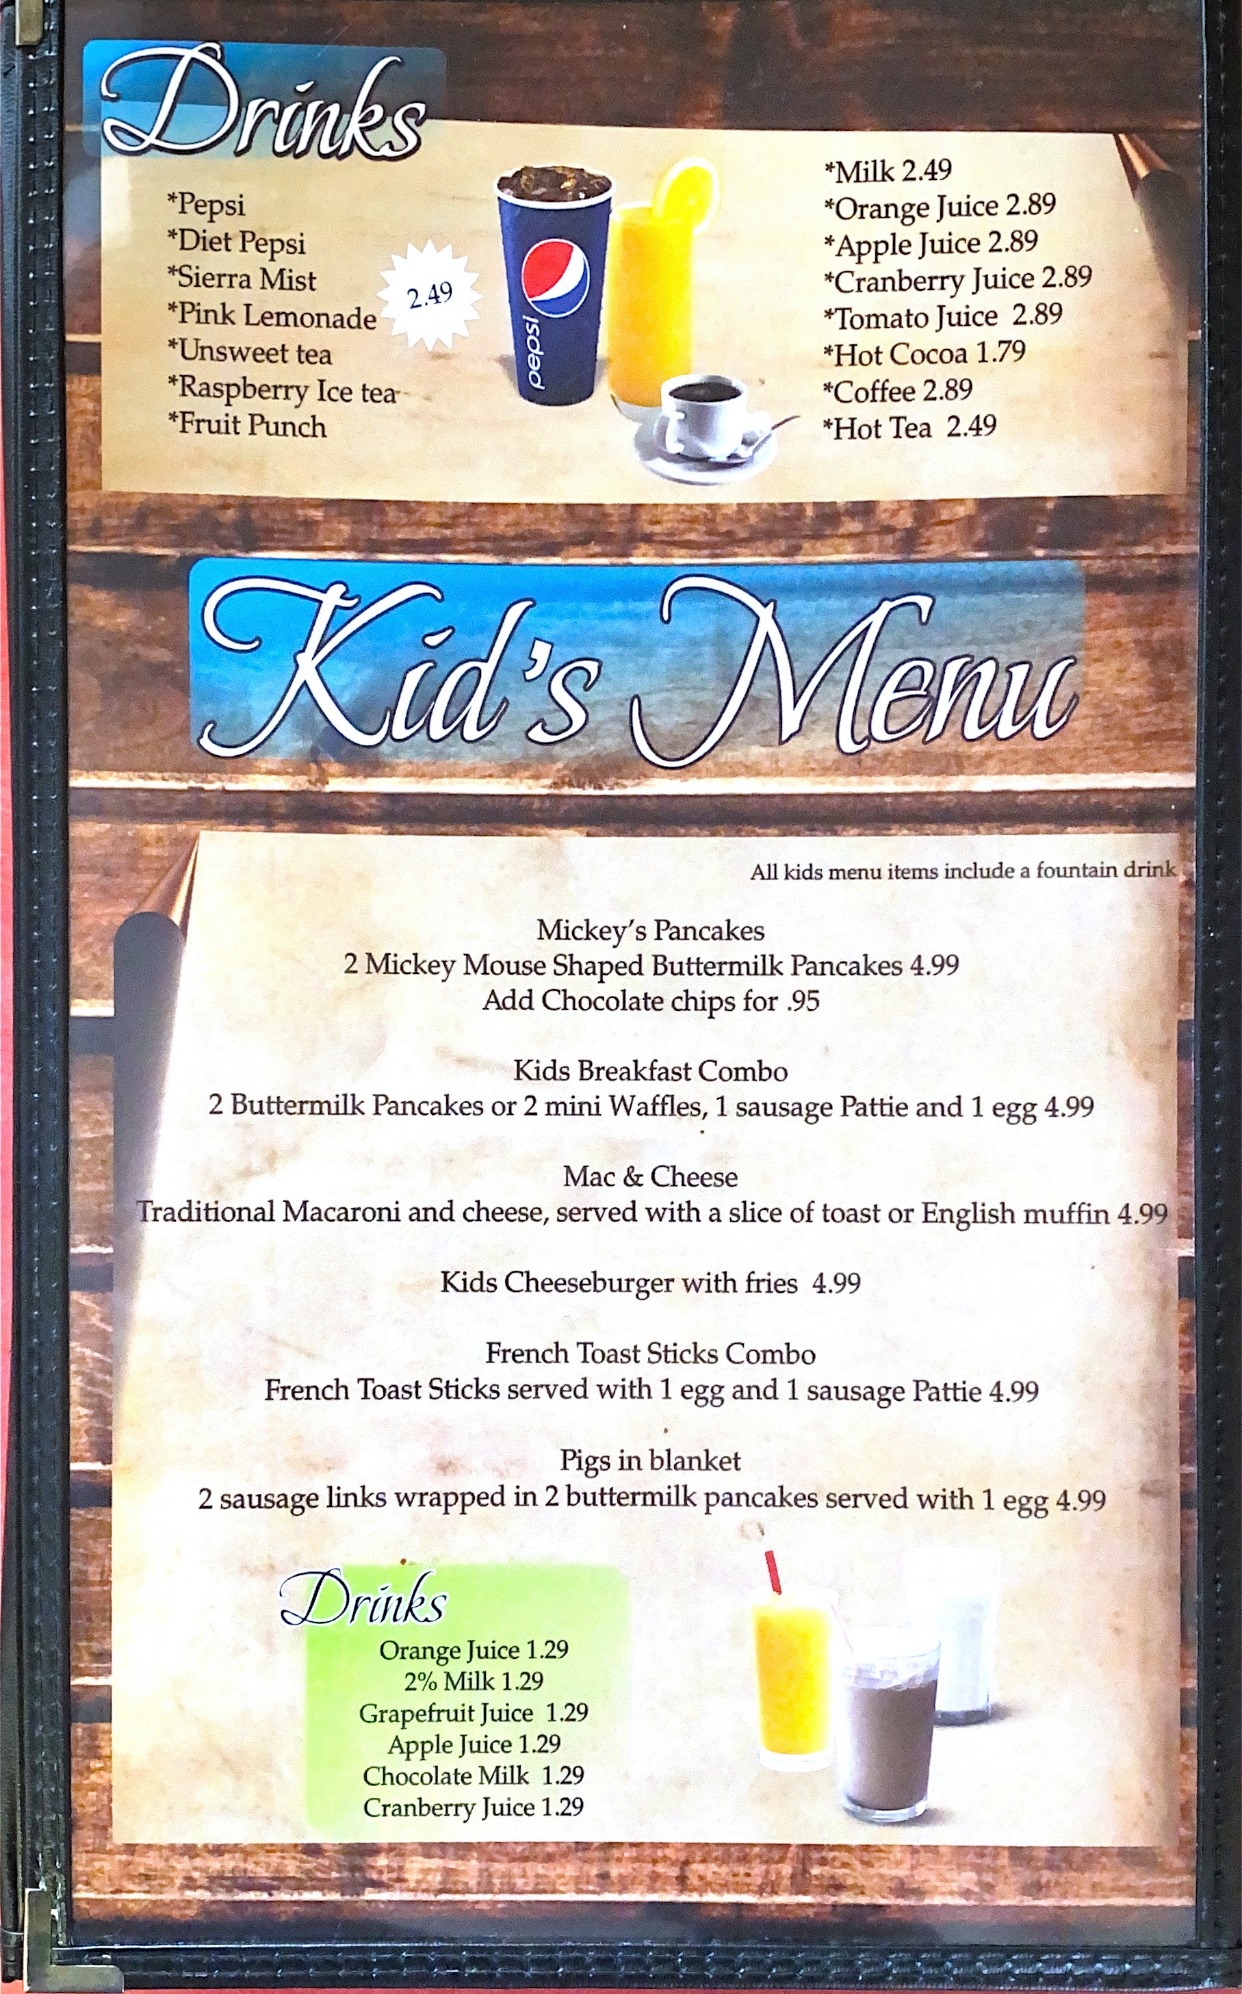 Drinks
*Pepsi
*Diet Pepsi
*Sierra Mist
*Pink Lemonade
*Unsweet tea
*Raspberry Ice tea
*Fruit Punch
2.49
pepsi
*Milk 2.49
*Orange Juice 2.89
*Apple Juice 2.89
*Cranberry Juice 2.89
*Tomato Juice 2.89
*Hot Cocoa 1.79
*Coffee 2.89
*Hot Tea 2.49
Kid's Menu
All kids menu items include a fountain drink
Mickey's Pancakes
2 Mickey Mouse Shaped Buttermilk Pancakes 4.99
Add Chocolate chips for .95
Kids Breakfast Combo
2 Buttermilk Pancakes or 2 mini Waffles, 1 sausage Pattie and 1 egg 4.99
Mac & Cheese
Traditional Macaroni and cheese, served with a slice of toast or English muffin 4.99
Kids Cheeseburger with fries 4.99
French Toast Sticks Combo
French Toast Sticks served with 1 egg and 1 sausage Pattie 4.99
Pigs in blanket
2 sausage links wrapped in 2 buttermilk pancakes served with 1 egg 4.99
Drinks
Orange Juice 1.29
2% Milk 1.29
Grapefruit Juice 1.29
Apple Juice 1.29
Chocolate Milk 1.29
Cranberry Juice 1.29